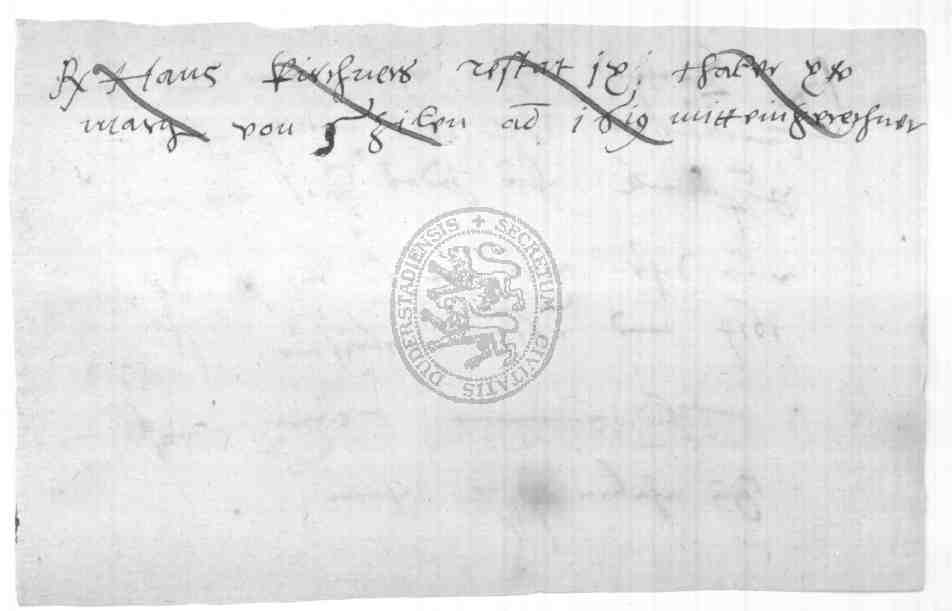 Hans Kirchners restat ix thaler xx
marg von 5 ad 1619 mitt eingerechnet
SECRETUM CIVITATIS DUDERSTADIENSIS